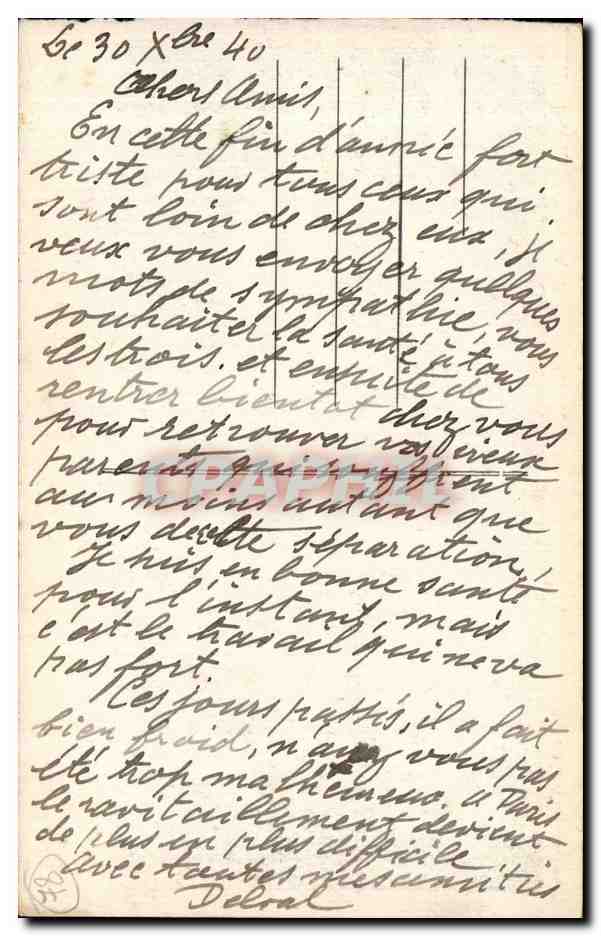 Le 30 Xbre 40
Chers Amis,
En cette fin d'année fort
triste pour tous ceux qui
sont loin de chez eux, je
veux vous envoyer quelques
mots de sympathie, vous
souhaiter la santé à tous
les trois. et ensuite de
rentrer bientot chez vous
pour retrouver vos vieux
parents qui souffrent
au moins autant que
vous de cette séparation,
Je suis en bonne santé
pour l'instant, mais
c'est le travail qui ne va
pas fort.
Ces jours passés, il a fait
bien froid, n'avez vous pas
été trop malheureux. a Paris
le ravitaillement devient
de plus en plus difficile
avec toutes mes amitiés
Delval
CPAPHIL